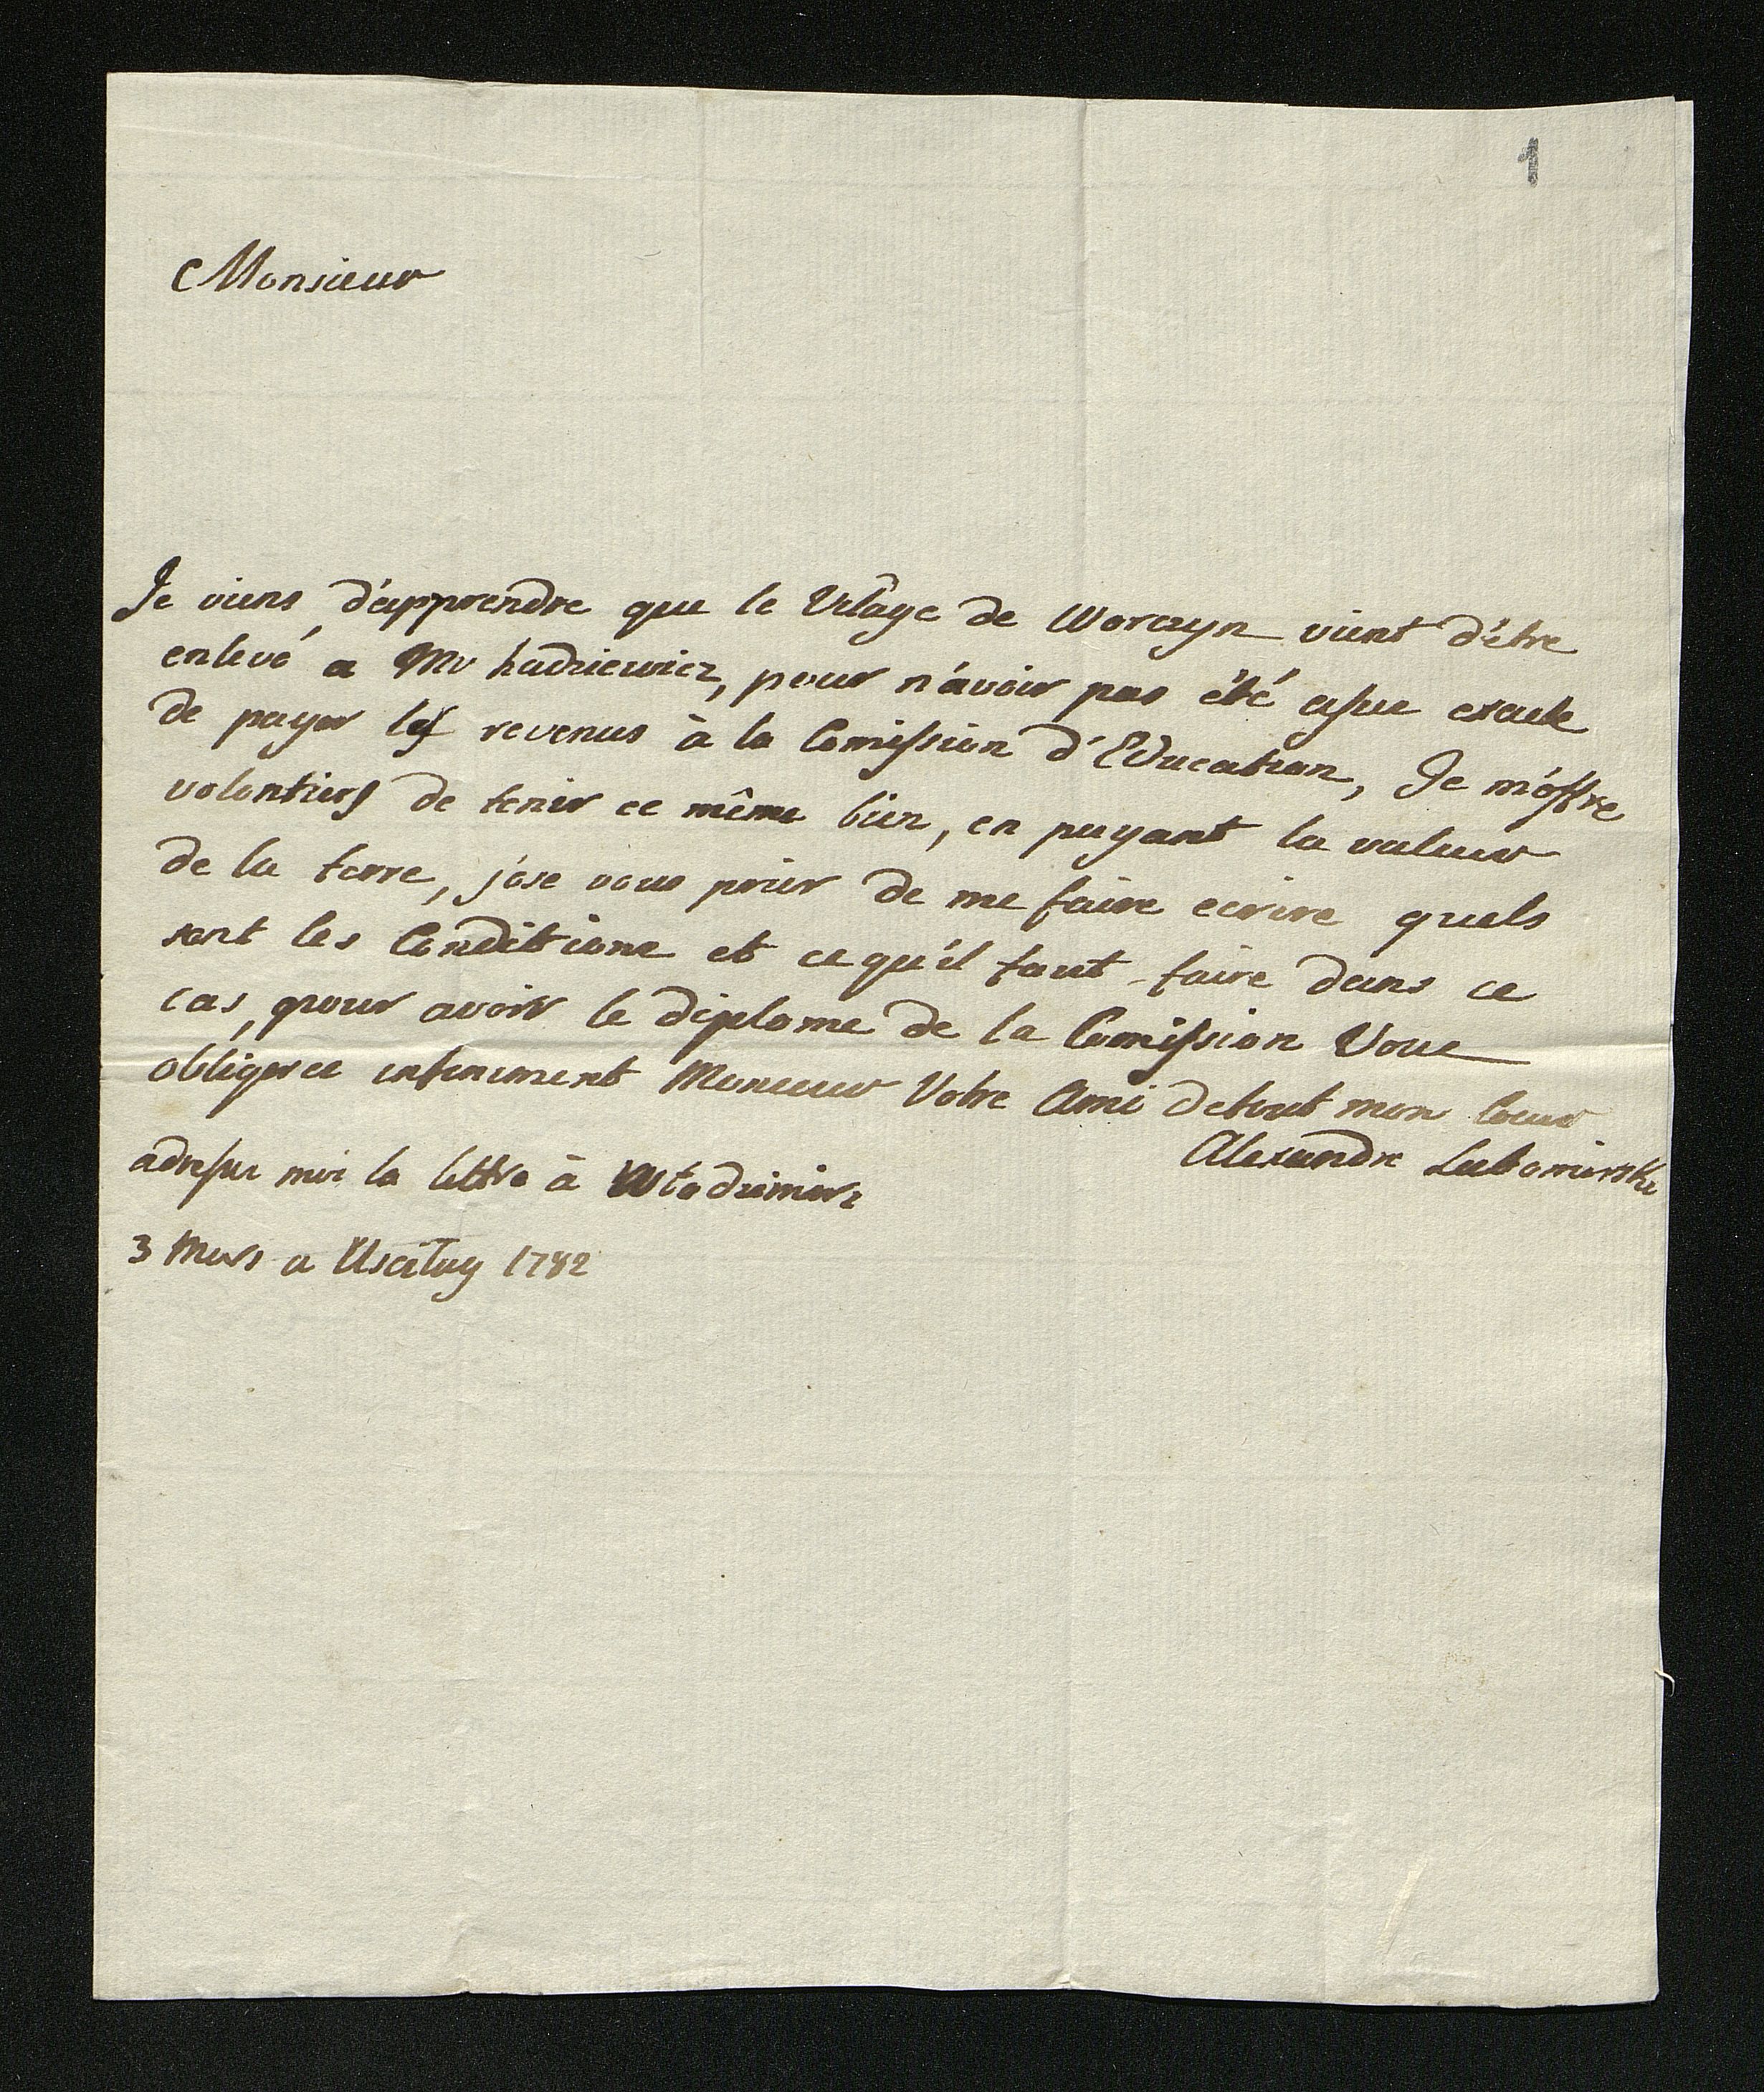 1
Monsieur
Je viens d'apprendre que le Vilage de Worczyn vient d'être
enlevé a Mr hadziewicz, pour n'avoir pas été assez exacte
de payer les revenus à la Comission d'Education, Je m'offre
volontiers de tenir ce même bien, en payant la valeur
de la terre, j'ose vous prier de me faire ecrire quels
sont les Conditions et ce qu'il faut faire dans ce
cas, pour avoir le diplome de la Comission Vous
obligerez infiniment Monsieur Votre Ami de tout mon Coeur
Alexandre Lubomirski
adressez moi la lettre à Wlodzimirz
3 Mars a Uscilug 1782